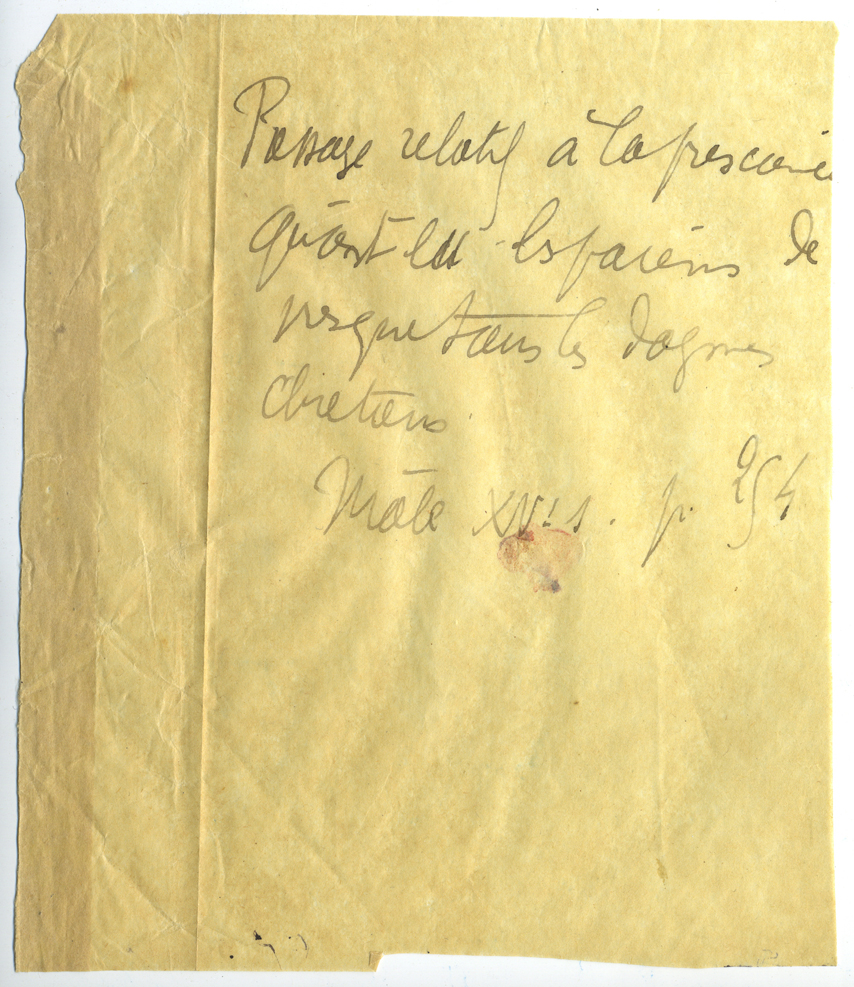 Passage relatif à la prescience
qu'ont eu les païens de
presque tous les dogmes
chrétiens.
Mâle XVI s. p. 254